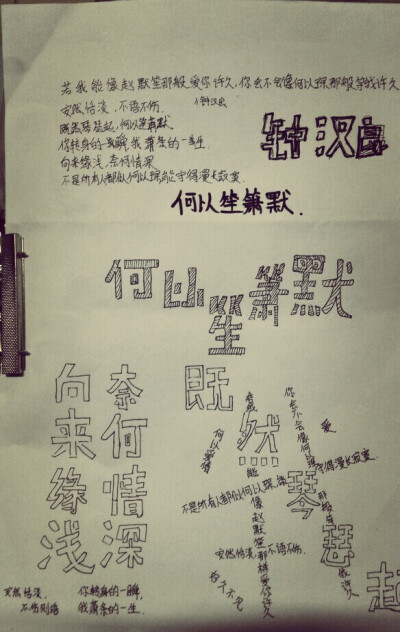 若我能像赵默笙那般爱你许久,你会不会像何以琛那般等我许久
安然恬淡,不语不伤.
(钟汉良
既然琴瑟起,何以笙箫默.
你转身的一瞬,我萧条的一生.
向来缘浅,奈何情深
不是所有人都似何以琛能守得漫长寂寞.
钟汉良
何以笙箫默.
何以笙箫默
向来缘浅
奈何情深
既然琴瑟起
你会不会像何以琛
那般等我许久
爱
守得漫长寂寞
不是所有人都似何以琛能
能像赵默笙那样爱你许久
安然恬淡 不语不伤.
安然恬淡.
不伤则痛
你转身的一瞬,
我萧条的一生.